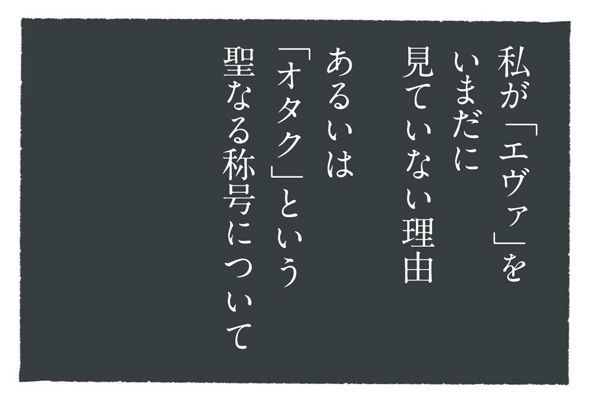 私が「エヴァ」を
いまだに
見ていない理由
あるいは
「オタク」という
聖なる称号について